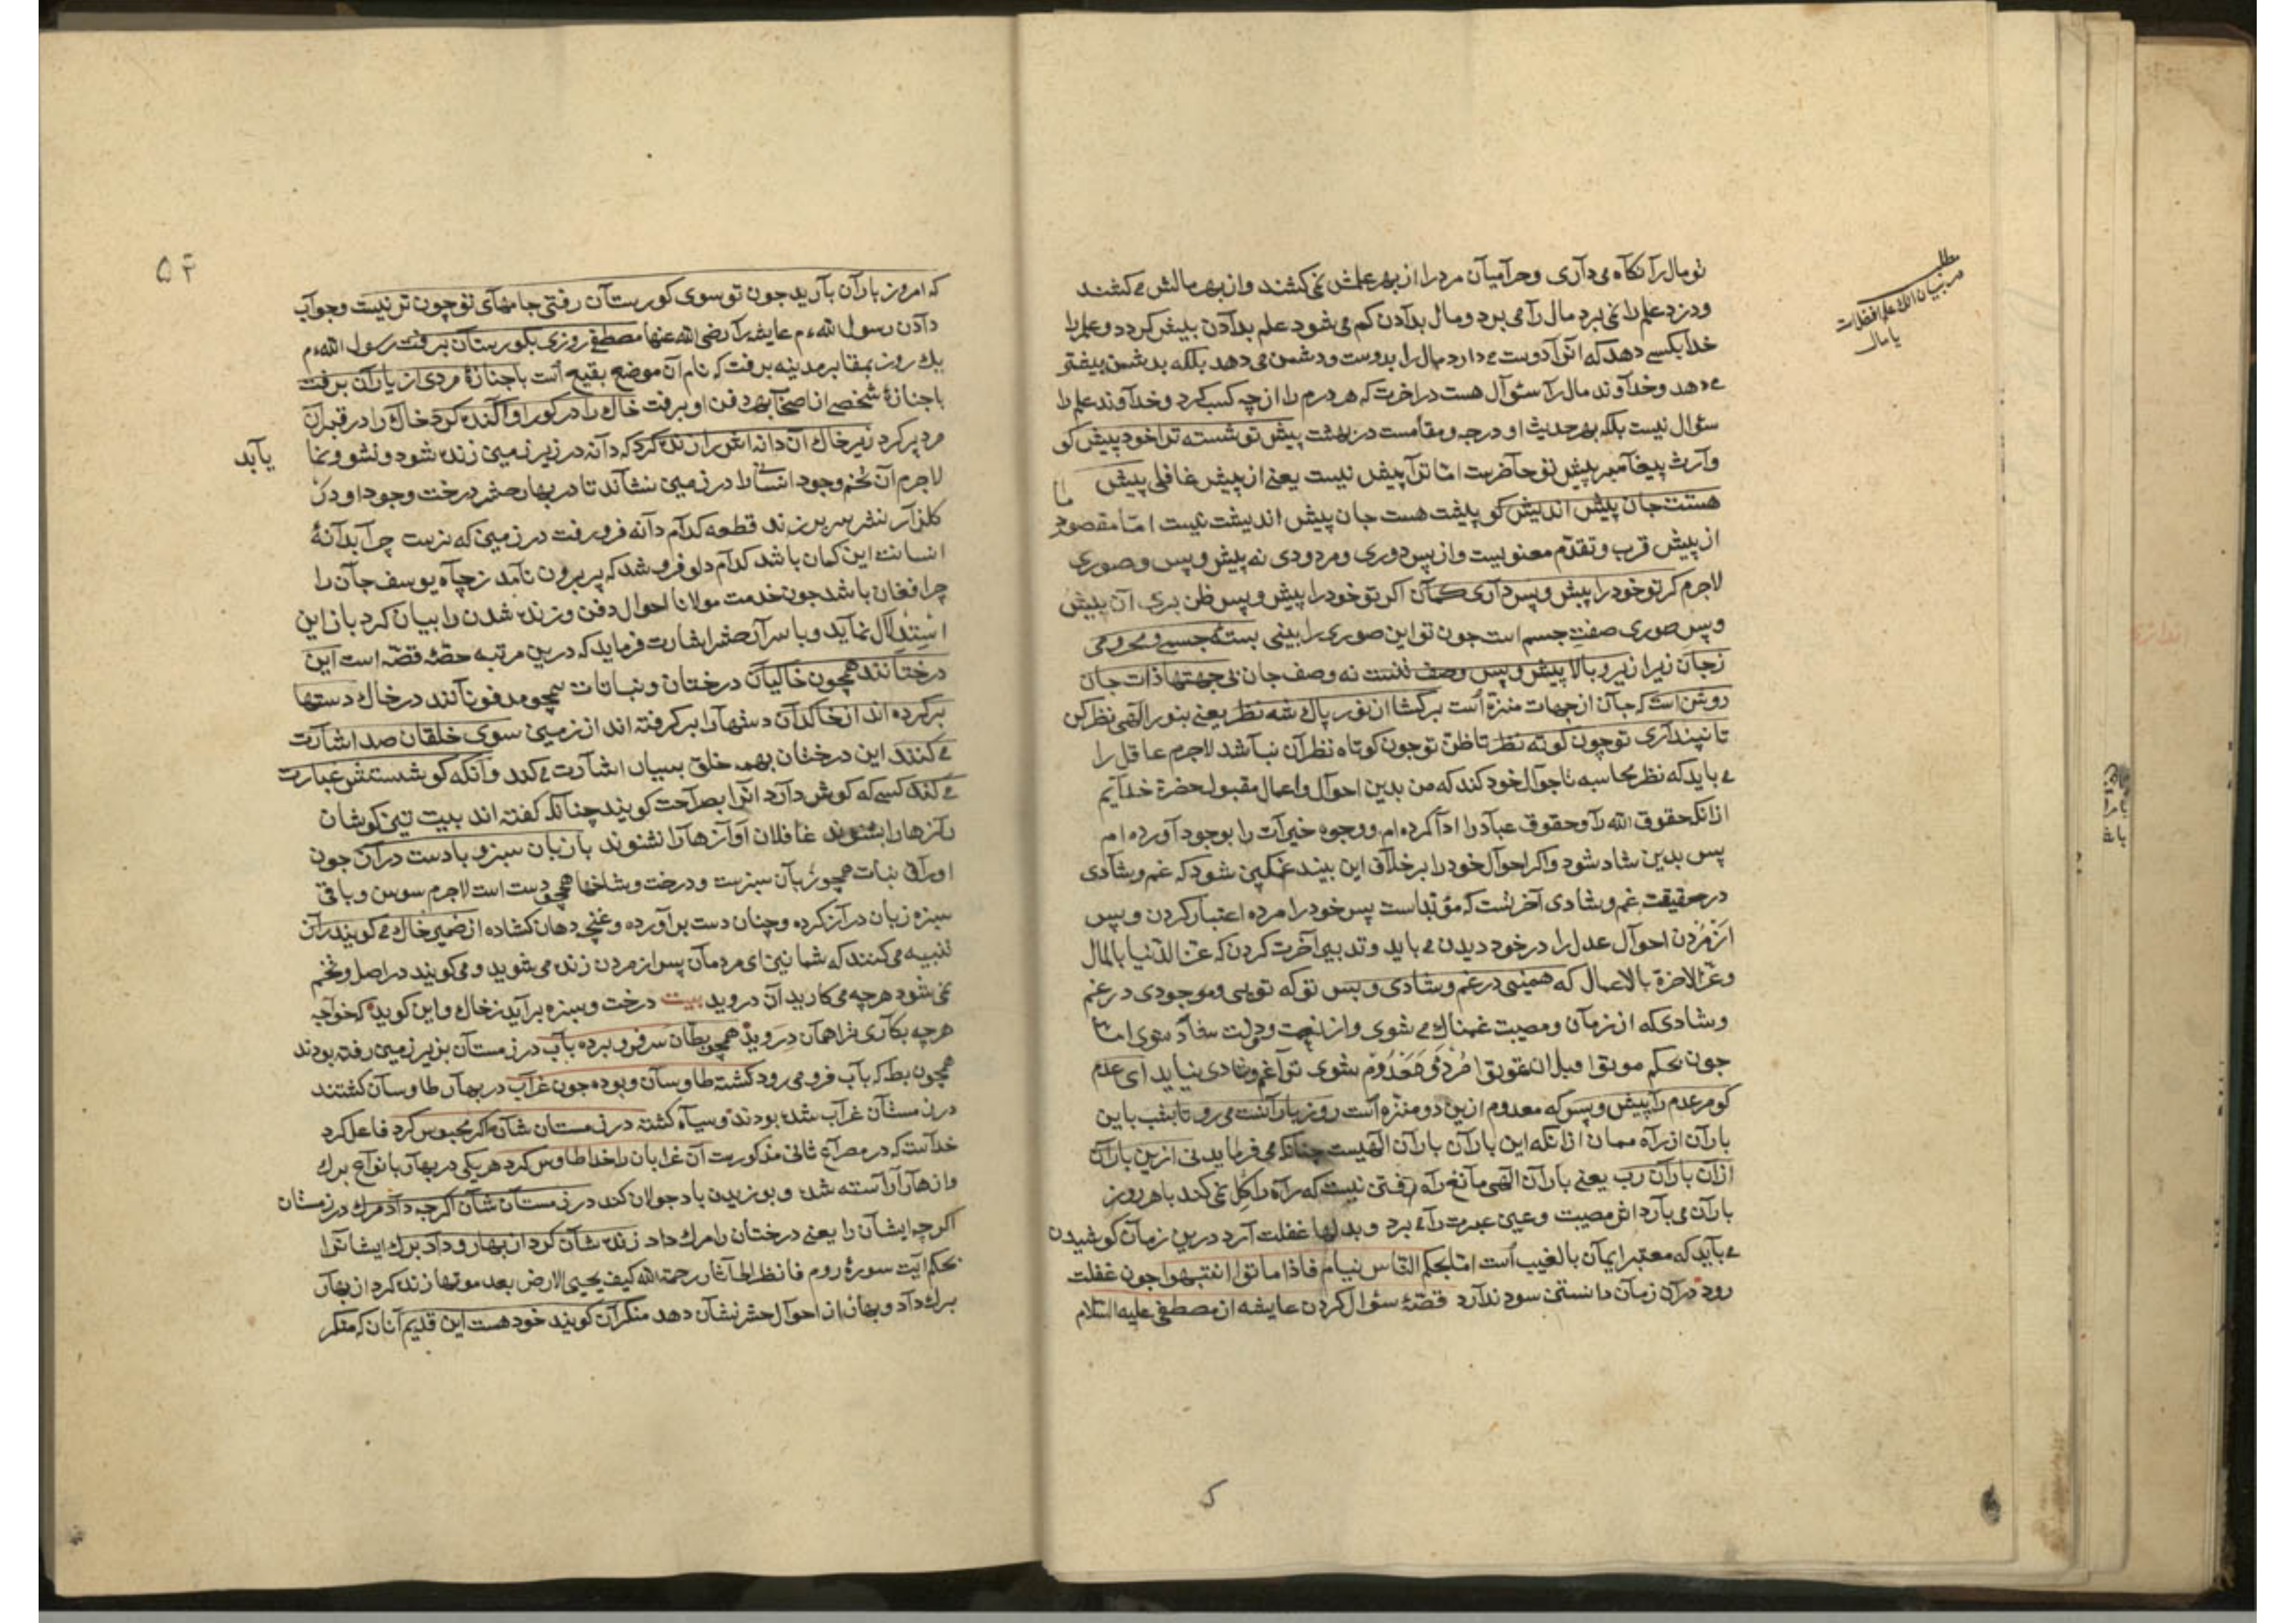 مطلب
در بیان آنکه علم افضلست
یا مال
تو مال را نگاه می داری و حرامیان مرد را از بهر علمش نمی کشند و از بهر مالش می کشند
و دزد علم را نمی برد مال را می برد و مال بدادن کم می شود علم بدادن بیش گردد و علم را
خدا بکسی دهد که انرا دوست می دارد مال را بدوست و دشمن می دهد بلکه بدشمن بیشتر
می دهد و خداوند مال را سئوال هست در اخرت که هر درم را از چه کسب کرد و خداوند علم را
سئوال نیست بلکه بهر حدیث او درجه و مقامست در بهشت پیش تو شسته ترا خود پیش کو
وارث پیغامبر پیش تو حاضرست اما ترا پیش نیست یعنی از پیش غافلی پیش
هستت جان پیش اندیش کو پیشت هست جان پیش اندیشت نیست اما مقصود ما
از پیش قرب و تقدم معنویست و از پس دوری و مردودی نه پیش و پس و صوری
لاجرم کر تو خود را پیش و پس داری کمان اکر تو خود را پیش و پس ظن بری آن پیش
و پس صوری صفت جسم است جون تو این صوری را بینی بسته جسمی و محرومی
ز جان زیرا زیر و بالا پیش و پس وصف تنست نه وصف جان بی جهتها ذات جان
روشن است که جان از جهات منزه است برکشا از نور پاک شه نظر یعنی بنور الهی نظر کن
تا نپنداری توچون کوته نظر تا ظن توچون کوتاه نظران نباشد لاجرم عاقل را
می باید که نظر محاسبه باحوال خود کند که من بدین احوال و اعمال مقبول حضرة خدایم
ازانکه حقوق الله را و حقوق عباد را ادا کرده ام و وجوه خیرات را بوجود آورده ام
پس بدین شاد شود و اکر احوال خود را برخلاف این بیند غمکین شود که غم و شادی
در حقیقت غم و شادی آخرتست که مؤبداست پس خود را مرده اعتبار کردن و پس
از مردن احوال عدل را در خود دیدن می باید و تدبیر آخرت کردن که عز الدنیا بالمال
و عز الاخرة بالاعمال که همینی در غم و شادی و بس تو که تویی و موجودی در غم
و شادی که از زمان و مصیبت غمناک می شوی و از نعمت و دولت شاد شوی اما
جون بحکم موتوا قبل ان تموتوا مردی و معدوم شوی ترا غم و شادی نیاید ای عدم
کو مر عدم را پیش و پس که معدوم ازین دو منزه است روز بارانست می رو تا بشب با این
باران از راه ممان ازانکه این باران باران الهیست چنانکه می فرماید نی ازین باران
ازان باران رب یعنی باران الهی مانع راه رفتن نیست که راه را کل نمی کند با هر روز
باران می بارد اش مصیبت و عین عبرت را می برد و بدلها غفلت آرد درین زمان کوشیدن
می باید که معتبر ایمان بالغیب است اما بحکم الناس نیام فاذا ماتوا انتبهوا جون غفلت
رود دران زمان دانستن سود ندارد قصهٔ سئوال کردن عایشه از مصطفی علیه السلام
که
۵۲
که امروز باران بارید جون تو سوی کورستان رفتی جامهای تو چون تر نیست و جواب
دادن رسول الله م عایشه را رضی الله عنها مصطفی روزی بکورستان برفت رسول الله م
یک روز بمقابر مدینه برفت که نام آن موضع بقیع است با جنازهٔ مردی از یاران برفت
با جنازهٔ شخصی از اصحاب بهر دفن او برفت خاک را در کور او اکنده کرد خاک را در قبر آن
مرد پر کرد زیر خاک آن دانه اش را زنده کرد که دانه در زیر زمین زنده شود و نشو و نما یابد
لاجرم آن تخم وجود انسانرا در زمین نشاند تا در بهار حشر درخت وجود او در
کلزار نشر سر بر زند قطعه کدام دانه فرو رفت در زمین که نرست چرا بدانهٔ
انسانت این کمان باشد کدام دلو فرو شد که پر برون نامد ز چاه یوسف جان را
چرا فغان باشد جون خدمت مولانا احوال دفن و زنده شدن را بیان کرد باز این
استدلال نماید و با سرار حشر اشارت فرماید که درین مرتبه حصهٔ قصه است این
درختانند همچون خاکیان درختان و نباتات همچو مدفونانند در خاک دستها
برکرده اند از خاکدان دستها را برکرفته اند از زمین سوی خلقان صد اشارت
می کنند این درختان بهمه خلق بسیار اشارت می کند وانکه کوشستش عبارت
می کند کسی که کوش دارد انرا بصراحت کویند چنانکه کفته اند بیت تیز کوشان
رازها را بشنوند غافلان آوازها را نشنوند با زبان سبز و با دست دراز جون
اوراق نبات همچو زبان سبزست و درخت و شاخها همچو دست است لاجرم سوسن و باقی
سبزه زبان دراز کرده و چنان دست براورده و غنچه دهان کشاده از ضمیر خاک می کویند راز
تنبیه می کنند که شما نیز ای مردمان پس از مردن زنده می شوید و می کویند در اصل و تخم
نمی شود هرچه می کارید آن دروید بیت درخت و سبزه براید ز خاک و این کوید که خواجه
هرچه بکاری ترا همان دروید همچو بطان سر فرو برده بآب در زمستان بزیر زمین رفته بودند
همچون بط که بآب فرو می رود کشته طاوسان و بوده جون غراب در بهار طاوسان کشتند
در زمستان غراب شده بودند و سیاه کشته در زمستان شان اکر محبوس کرد فاعل کرد
خداست که در مصراع ثانی مذکورست آن غرابان را خدا طاوس کرد هر یکی در بهار بانواع برک
و ازهار آراسته شد و بوزیدن باد جولان کند در زمستان شان اکرچه داد مرک در زمستان
اکرچه ایشان را یعنی درختان را مرک داد زنده شان کرد از بهار و داد برک ایشانرا
بحکم آیت سورهٔ روم فانظر الی آثار رحمة الله کیف یحیی الارض بعد موتها زنده کرد از بهار
برک داد و بهار از احوال حشر نشان دهد منکران کویند خود هست این قدیم آنان که منکر